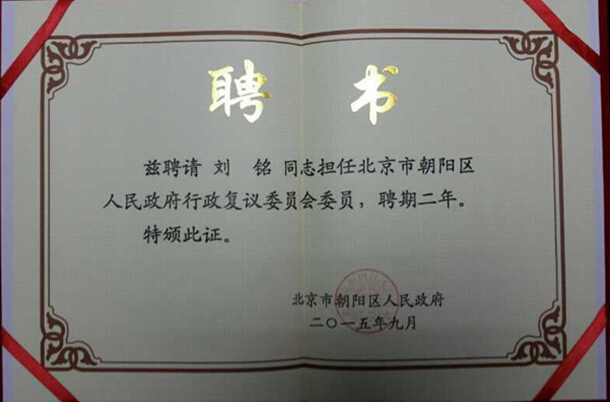 聘 书
兹聘请 刘 铭 同志担任北京市朝阳区
人民政府行政复议委员会委员，聘期二年。
特颁此证。
北京市朝阳区人民政府
二〇一五年九月